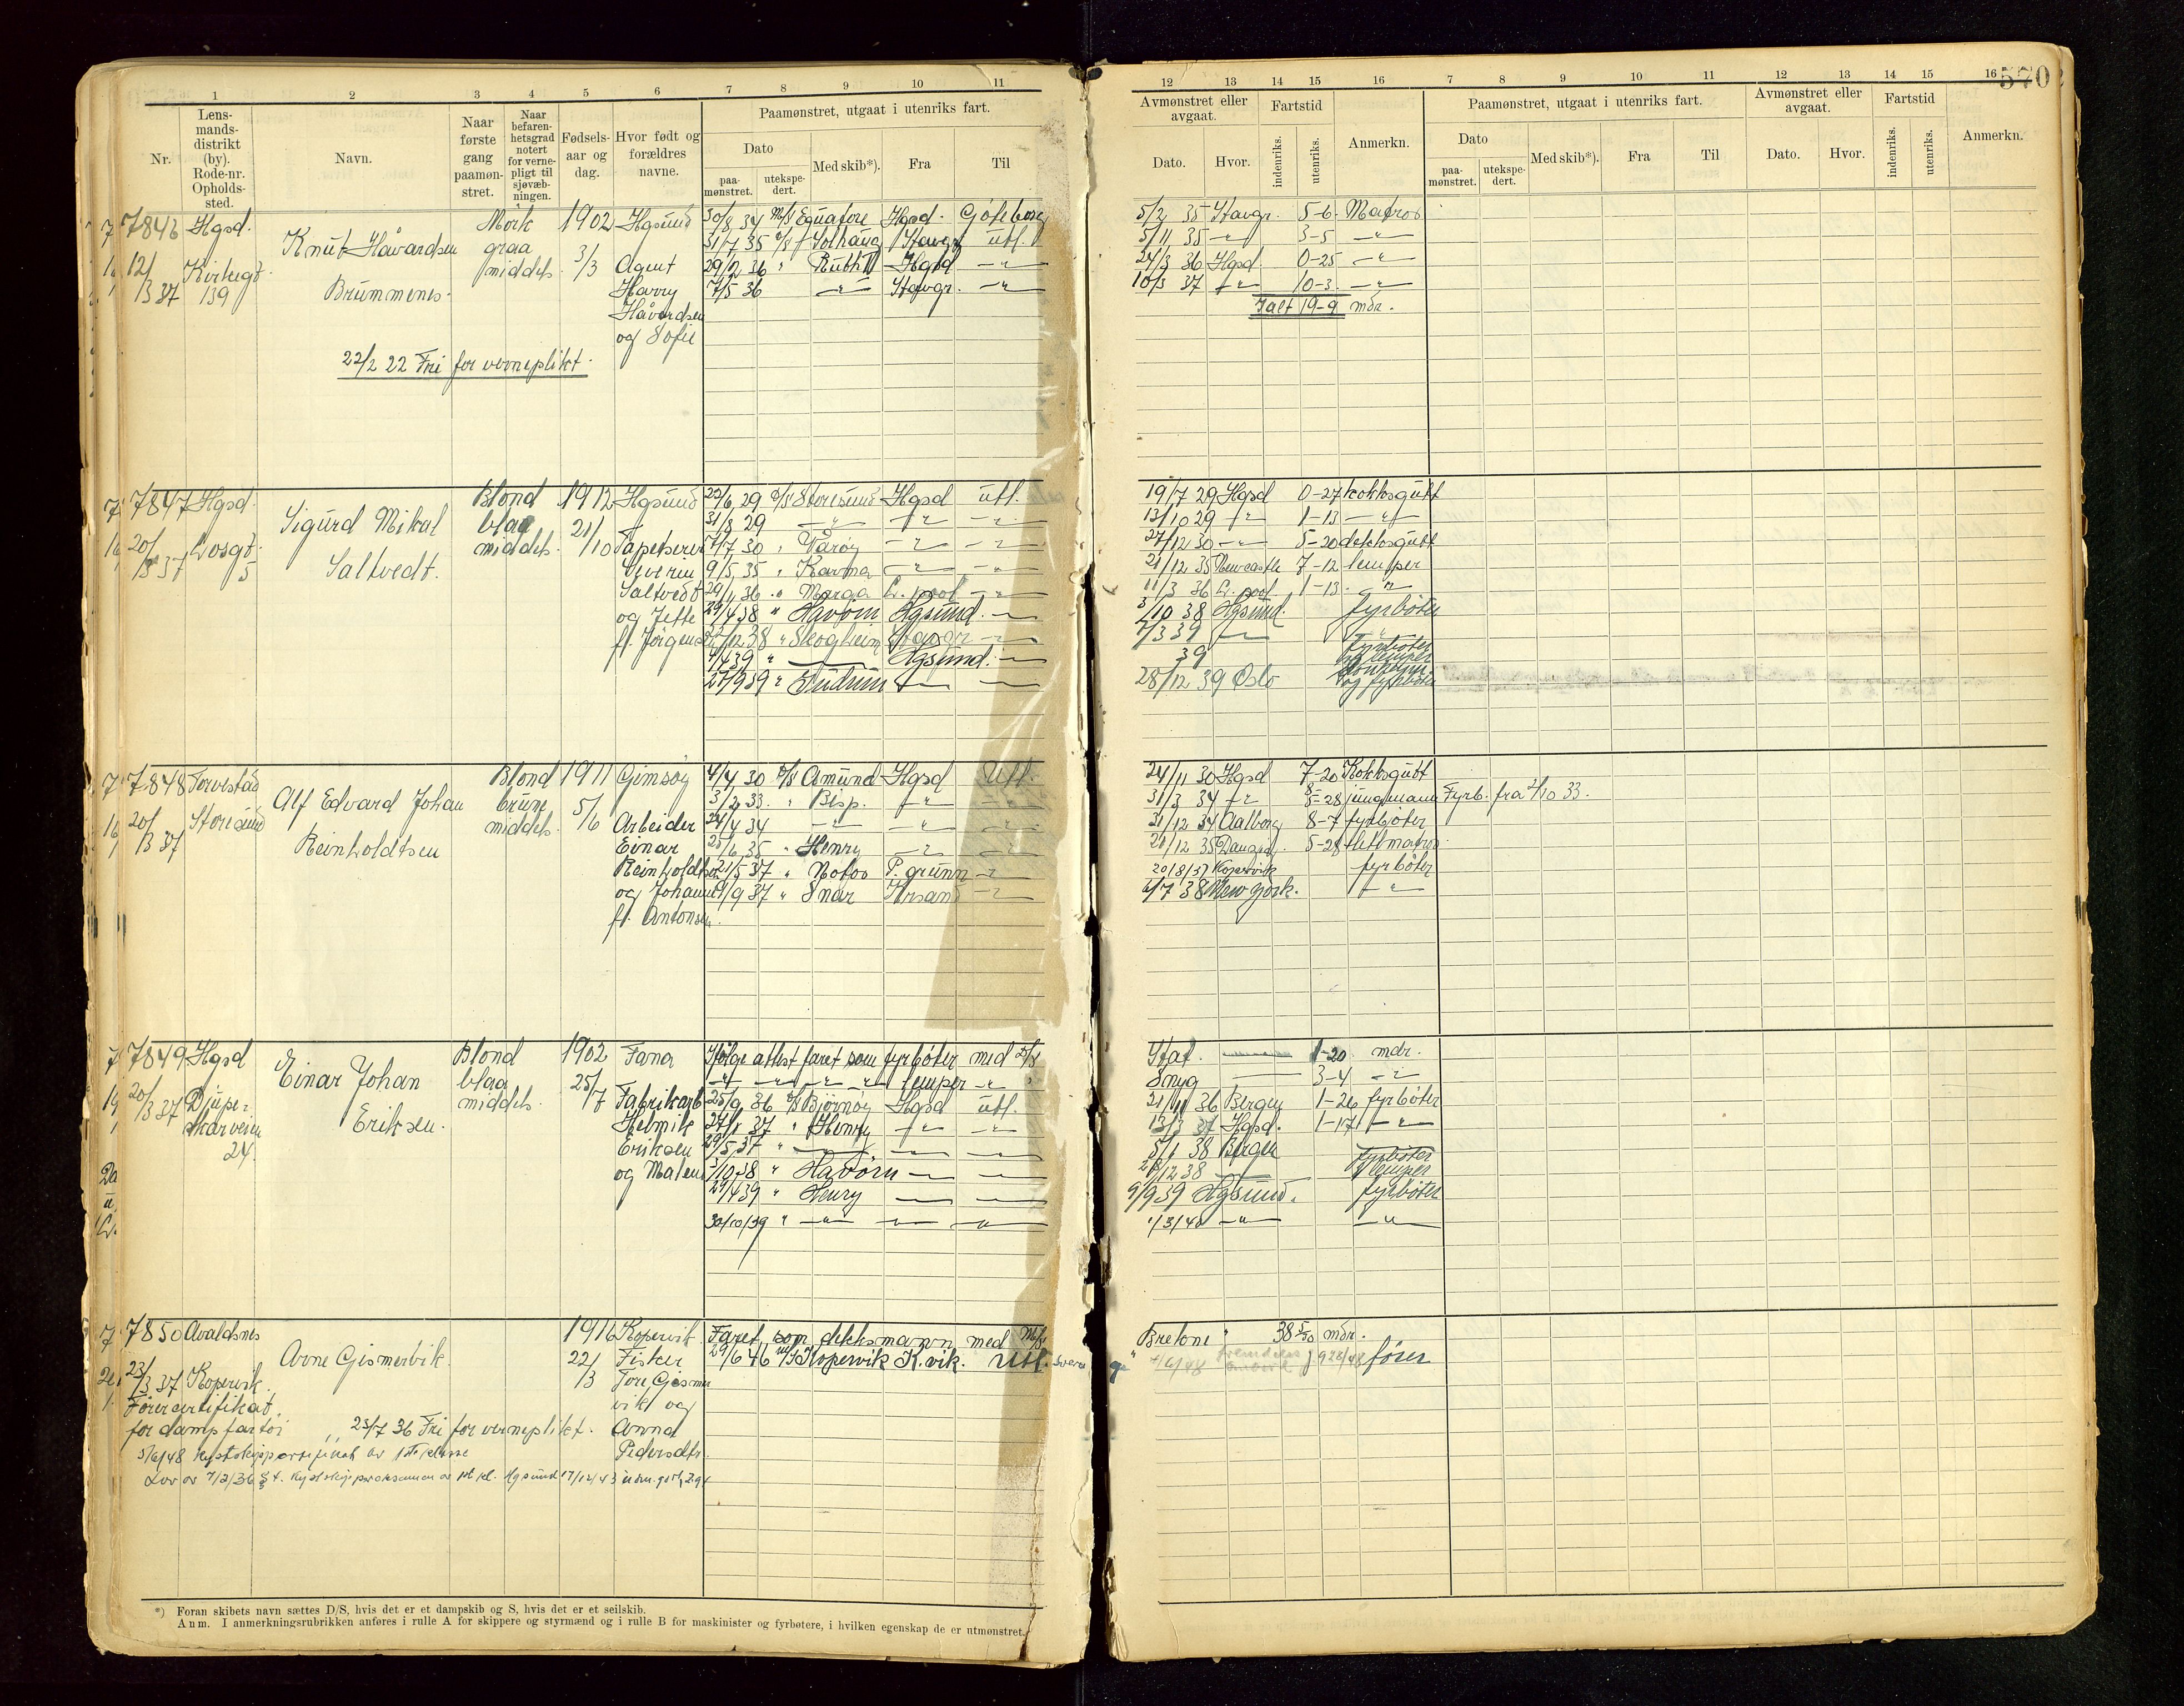 570
1 2 3 4 5 6 7 8 9 10 11
12 13 14 15 16 7 8 9 10 11 12 13 14 15 16
Nr.
Lens-
mands-
distrikt
(by).
Rode-nr.
Opholds-
sted.
Navn.
Naar
første
gang
paamøn-
stret.
Naar
befaren-
hetsgrad
notert
for verne-
pligt til
sjøvæb-
ningen.
Fødsels-
aar og
dag.
Hvor født og
forældres
navne.
Paamønstret, utgaat i utenriks fart.
Dato
paa-
mønstret.
utekspe-
dert.
Med skib*).
Fra
Til
Avmønstret eller
avgaat.
Dato.
Hvor.
Fartstid
indenriks.
utenriks.
Anmerkn.
Paamønstret, utgaat i utenriks fart.
Dato
paa-
mønstret.
utekspe-
dert.
Med skib*).
Fra
Til
Avmønstret eller
avgaat.
Dato.
Hvor.
Fartstid
indenriks.
utenriks.
Anmerkn.
7846 Hgsd. Mørk 1902 Hgsund 30/8 34 M/S Equatore Hgsd. Göteborg 5/2 35 Stavgr. 5-6 Matros
Knut Håvardsen graa 31/7 35 D/S Solhaug Stavgr utl. 5/11 35 -"- 3-5 -"-
12/3 37 Kirkegt. 139 middels 3/3 Agent 29/2 36 " Ruth II Hgsd -"- 24/3 36 Hgsd 0-25 -"-
Brummenes. Harry 7/5 36 -"- Stavgr. -"- 10/3 37 -"- 10-3 -"-
Håvardsen Ialt 19-9 mdr.
og Sofie
22/2 22 Fri for verneplikt.
7847 Hgsd. Blond 1912 Hgsund 22/6 29 D/S Storesund Hgsd utl. 19/7 29 Hgsd 0-27 kokksgutt
Sigurd Mikal blaa 21/10 31/8 29 -"- -"- -"- 13/10 29 -"- 1-13 -"-
20/3 37 Losgt. 5 middels Tapetserer 7/7 30 " Varøy -"- -"- 27/12 30 -"- 5-20 dekksgutt
Saltvedt. Severin 9/5 35 " Karma -"- -"- 21/12 35 Newcastle 7-12 lemper
Saltvedt 29/1 36 " Marga L.pool -"- 11/3 36 L.pool 1-13 -"-
og Jette 29/4 38 " Havørn Hgsund. -"- 3/10 38 Hgsund. fyrbøter
f. Jørgens 22/12 38 " Skogheim Stavgr -"- 7/3 39 -"- -"-
4/4 39 " -"- Hgsund. -"- 39 fyrbøter og lemper
27/9 39 " -"- -"- 28/12 39 Oslo og fyrbøter
7848 Torvestad Blond 1911 Gimsøy 4/4 30 D/S Amund Hgsd Utl. 24/11 30 Hgsd 7-20 Kokksgutt
Alf Edvard Johan brune 5/6 3/2 33 " Bisp. -"- -"- 31/3 34 -"- 5-28 jungmann Fyrb. fra 2/10 33.
20/3 37 Storesund middels Arbeider 24/4 34 -"- -"- -"- 31/12 34 Aalborg 8-7 fyrbøter
Reinholdtsen Einar 25/6 35 " Henry -"- -"- 20/12 35 Danzig 5-28 lettmatros
Reinholdtsen 21/5 37 " Notos P.grunn -"- 20/8/37 Kopervik fyrbøter
og Johanne 21/9 37 " Snar Krsand -"- 6/7 38 New York. -"-
f. Antonsen.
7849 Hgsd Blond 1902 Fana Ifølge attest faret som fyrbøter med D/S Stat. 1-20 mdr.
Einar Johan blaa 25/7 -"- -"- -"- lemper -"- Snyg 3-4 -"-
20/3 37 Djupe- middels Fabrikarb 25/9 36 D/S Bjørnøy Hgsd utl. 21/11 36 Bergen 1-26 fyrbøter
skarveien Eriksen. Helmik 27/1 37 " Henry -"- -"- 13/3 37 Hgsd. 1-17 -"-
24. Eriksen 29/5 37 " -"- 5/1 38 Bergen
og Malene 3/10 38 " Havørn -"- -"- 28/12 38 -"- fyrbøter lemper
29/4 39 " Henry -"- -"- 9/9 39 Hgsund. fyrbøter
30/10/39 " -"- -"- -"- 1/3/40 -"- -"-
7850 Avaldsnes 1916 Kopervik Faret som dekksmann med M/K Bretone 38 5/30 mdr.
Arne Gismervik. 22/3 Fisker 29/6 46 M/S Kopervik K.vik. Utl. fører
23/3 37 Kopervik. Tore Gismer
Førercertifikat vik og
for dampfartøi 25/7 36 Fri for verneplikt. Anna
5/6/48 Kystskippersertifikat av 1ste klasse Pedersdtr.
Lov av 7/2/36 § 4. Kystskippereksamen av 1st kl. Hgsund 17/12/43
*) Foran skibets navn sættes D/S, hvis det er et dampskib og S, hvis det er et seilskib.
Anm. I anmerkningsrubrikken anføres i rulle A for skippere og styrmænd og i rulle B for maskinister og fyrbøtere, i hvilken egenskap de er utmønstret.